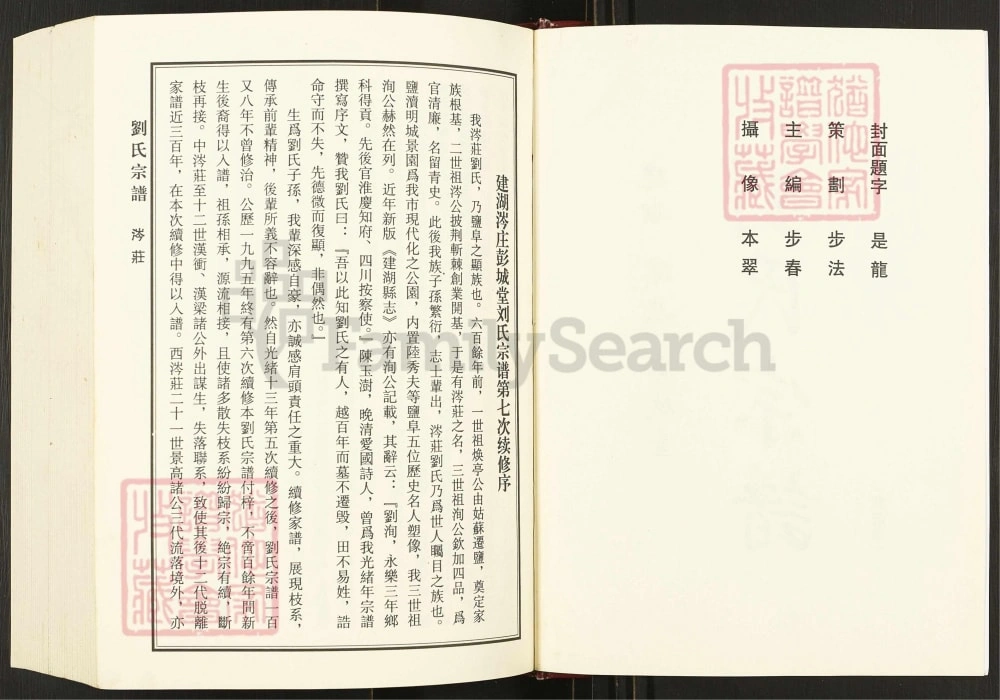 封面題字　是龍
策劃　步法
主編　步春
攝像　本翠
建湖涔庄彭城堂刘氏宗谱第七次续修序
我涔莊劉氏，乃鹽阜之顯族也。六百餘年前，一世祖焕亭公由姑蘇遷鹽，奠定家
族根基，二世祖涔公披荆斬棘創業開基，于是有涔莊之名，三世祖洵公欽加四品，爲
官清廉，名留青史。此後我族子孫繁衍，志士輩出，涔莊劉氏乃爲世人矚目之族也。
鹽瀆明城景園爲我市現代化之公園，内置陸秀夫等鹽阜五位歷史名人塑像，我三世祖
洵公赫然在列。近年新版《建湖縣志》亦有洵公記載，其辭云：『劉洵，永樂三年鄉
科得貢。先後官淮慶知府、四川按察使。陳玉澍，晚清愛國詩人，曾爲我光緒年宗譜
撰寫序文，贊我劉氏曰：『吾以此知劉氏之有人，越百年而墓不遷毁，田不易姓，誥
命守而不失，先德微而復顯，非偶然也。』
生爲劉氏子孫，我輩深感自豪，亦誠感肩頭責任之重大。續修家譜，展現枝系，
傳承前輩精神，後輩所義不容辭也。然自光緒十三年第五次續修之後，劉氏宗譜一百
又八年不曾修治。公歷一九九五年終有第六次續修本劉氏宗譜付梓，不啻百餘年間新
生後裔得以入譜，祖孫相承，源流相接，且使諸多散失枝系紛紛歸宗，絶宗有續，斷
枝再接。中涔莊至十二世漢衝、漢梁諸公外出謀生，失落聯系，致使其後十二代脱離
家譜近三百年，在本次續修中得以入譜。西涔莊二十一世景高諸公三代流落境外，亦
劉氏宗譜　涔莊
FamilySearch